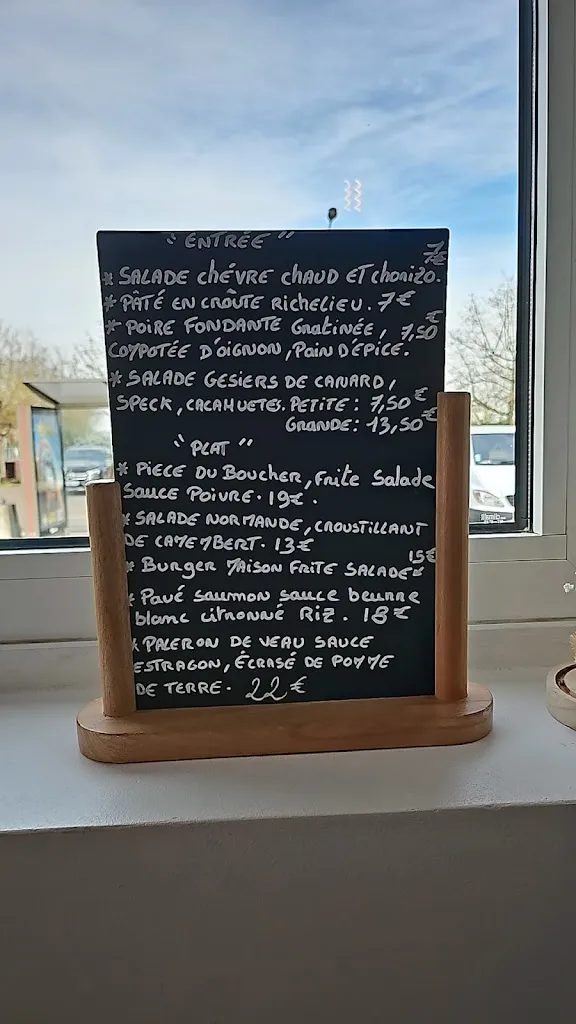 "ENTRÉE"
7€
* SALADE chévre chaud ET chorizo.
* PÂTÉ EN CROÛTE Richelieu. 7€
* POIRE FONDANTE Gratinée, 7,50€
COMPOTÉE D'OIGNON, PAIN D'ÉPICE.
* SALADE GESIERS DE CANARD,
SPECK, CACAHUETES. PETITE: 7,50€
GRANDE: 13,50€
"PLAT"
* PIECE DU BOUCHER, Frite Salade
SAUCE POIVRE. 19€.
* SALADE NORMANDE, CROUSTILLANT
DE CAMEMBERT. 13€
* BURGER MAISON FRITE SALADE 15€
* Pavé saumon sauce beurre
blanc citronné Riz. 18€
* PALERON DE VEAU SAUCE
ESTRAGON, ÉCRASÉ DE POMME
DE TERRE. 22€